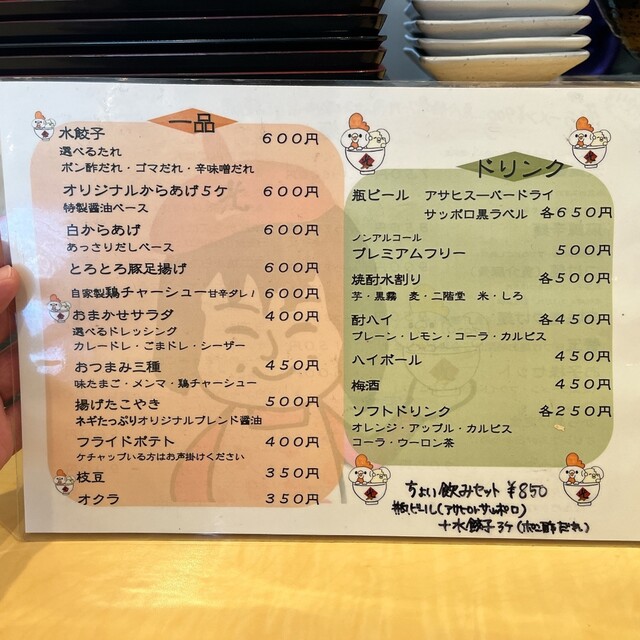 一品
水餃子 600円
選べるたれ
ポン酢だれ・ゴマだれ・辛味噌だれ
オリジナルからあげ5ケ 600円
特製醤油ベース
白からあげ 600円
あっさりだしベース
とろとろ豚足揚げ 600円
自家製鶏チャーシュー甘辛ダレ 600円
おまかせサラダ 400円
選べるドレッシング
カレードレ・ごまドレ・シーザー
おつまみ三種 450円
味たまご・メンマ・鶏チャーシュー
揚げたこやき 500円
ネギたっぷりオリジナルブレンド醤油
フライドポテト 400円
ケチャップいる方はお声掛けください
枝豆 350円
オクラ 350円
ドリンク
瓶ビール アサヒスーパードライ
サッポロ黒ラベル 各650円
ノンアルコール
プレミアムフリー 500円
焼酎水割り 各500円
芋・黒霧 麦・二階堂 米・しろ
酎ハイ 各450円
プレーン・レモン・コーラ・カルピス
ハイボール 450円
梅酒 450円
ソフトドリンク 各250円
オレンジ・アップル・カルピス
コーラ・ウーロン茶
ちょい飲みセット ¥850
瓶ビール(アサヒorサッポロ)
+水餃子3ケ(ポン酢だれ)